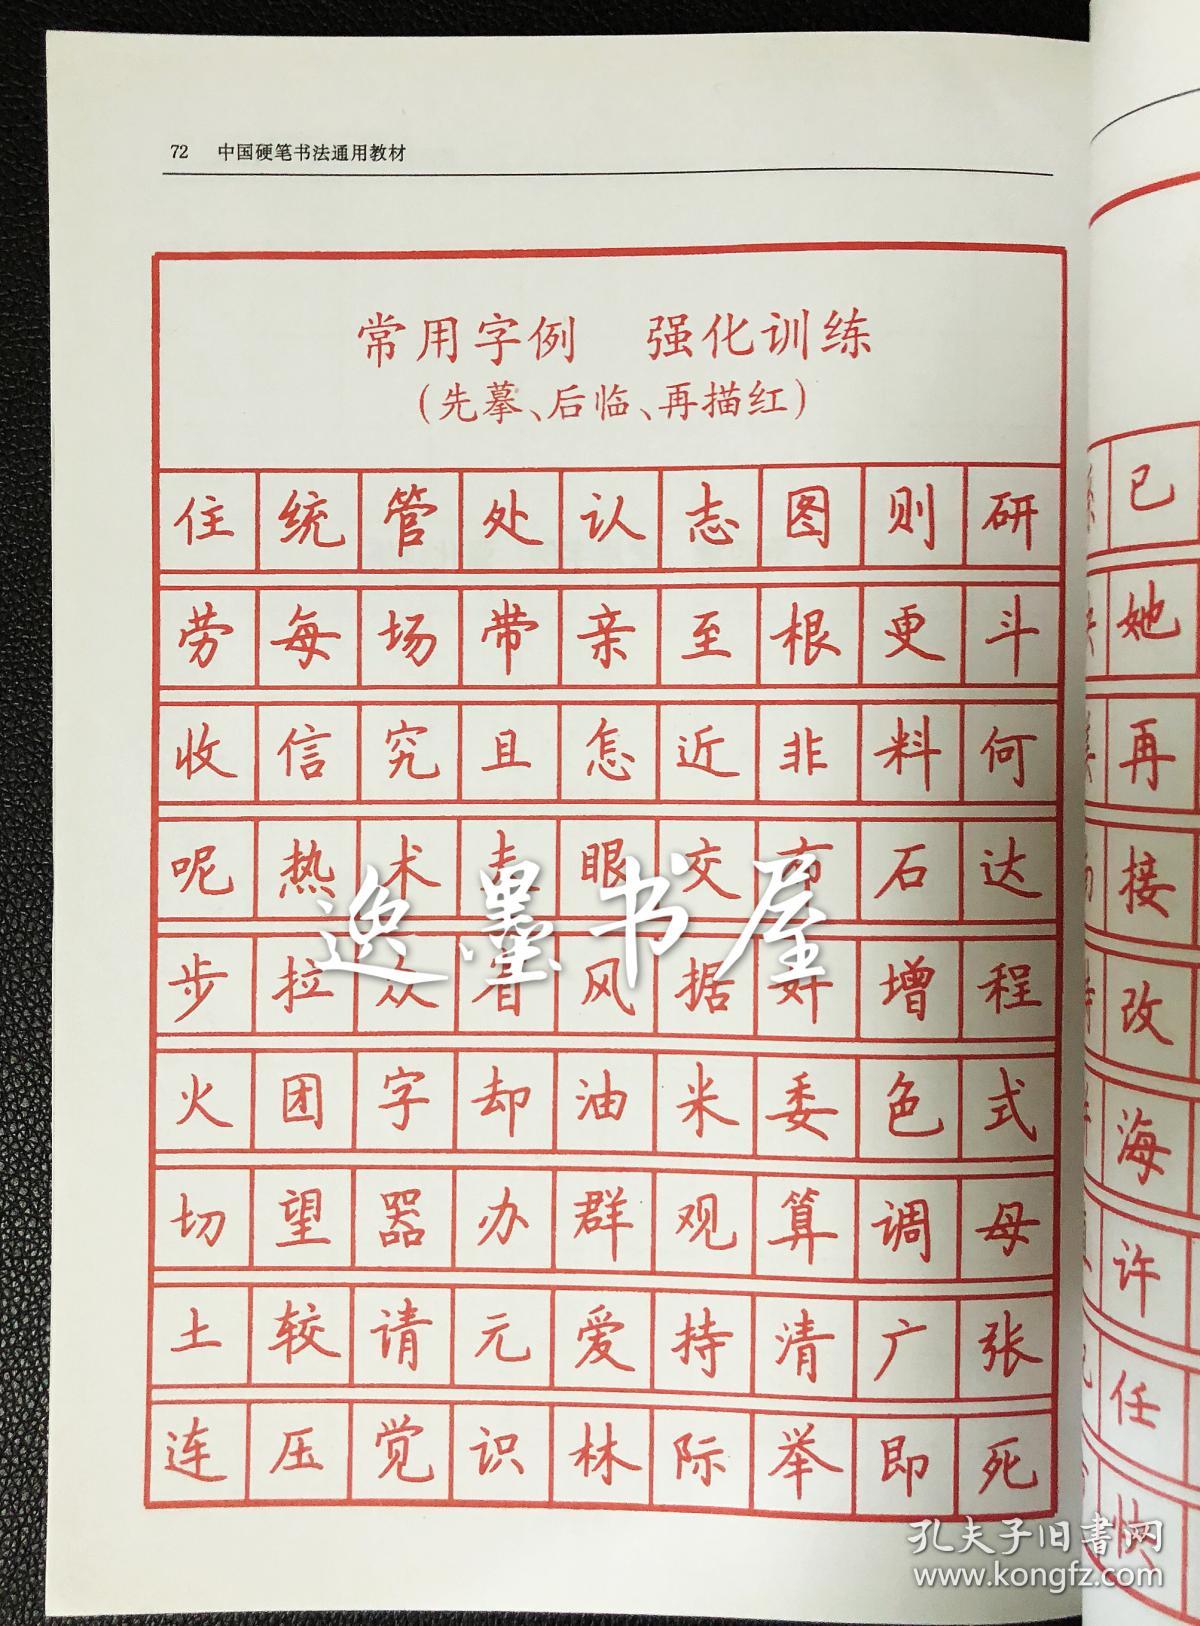 72 中国硬笔书法通用教材
常用字例 强化训练
(先摹、后临、再描红)
住统管处认志图则研
劳每场带亲至根更斗
收信究且怎近非料何
呢热术 眼交市石达
步拉众省风据 增程
火团字却油米委色式
切望器办群观算调母
土较请元爱持清广张
连压觉识林际举即死
已
她
再
接
改
海
许
任
快
逸墨书屋
孔夫子旧书网
www.kongfz.com